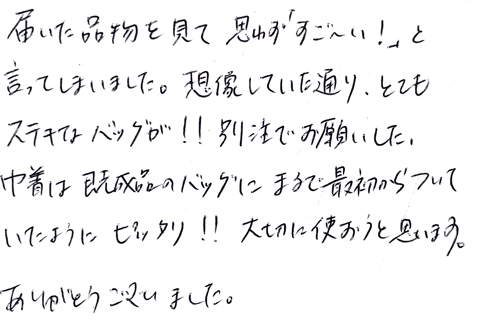 届いた品物を見て 思わず「すご〜い!」と
言ってしまいました。想像していた通り、とても
ステキなバッグが!! 別注でお願いした、
巾着は既成品のバッグにまるで最初からついて
いたように ピッタリ!! 大切に使おうと思います。
ありがとうございました。